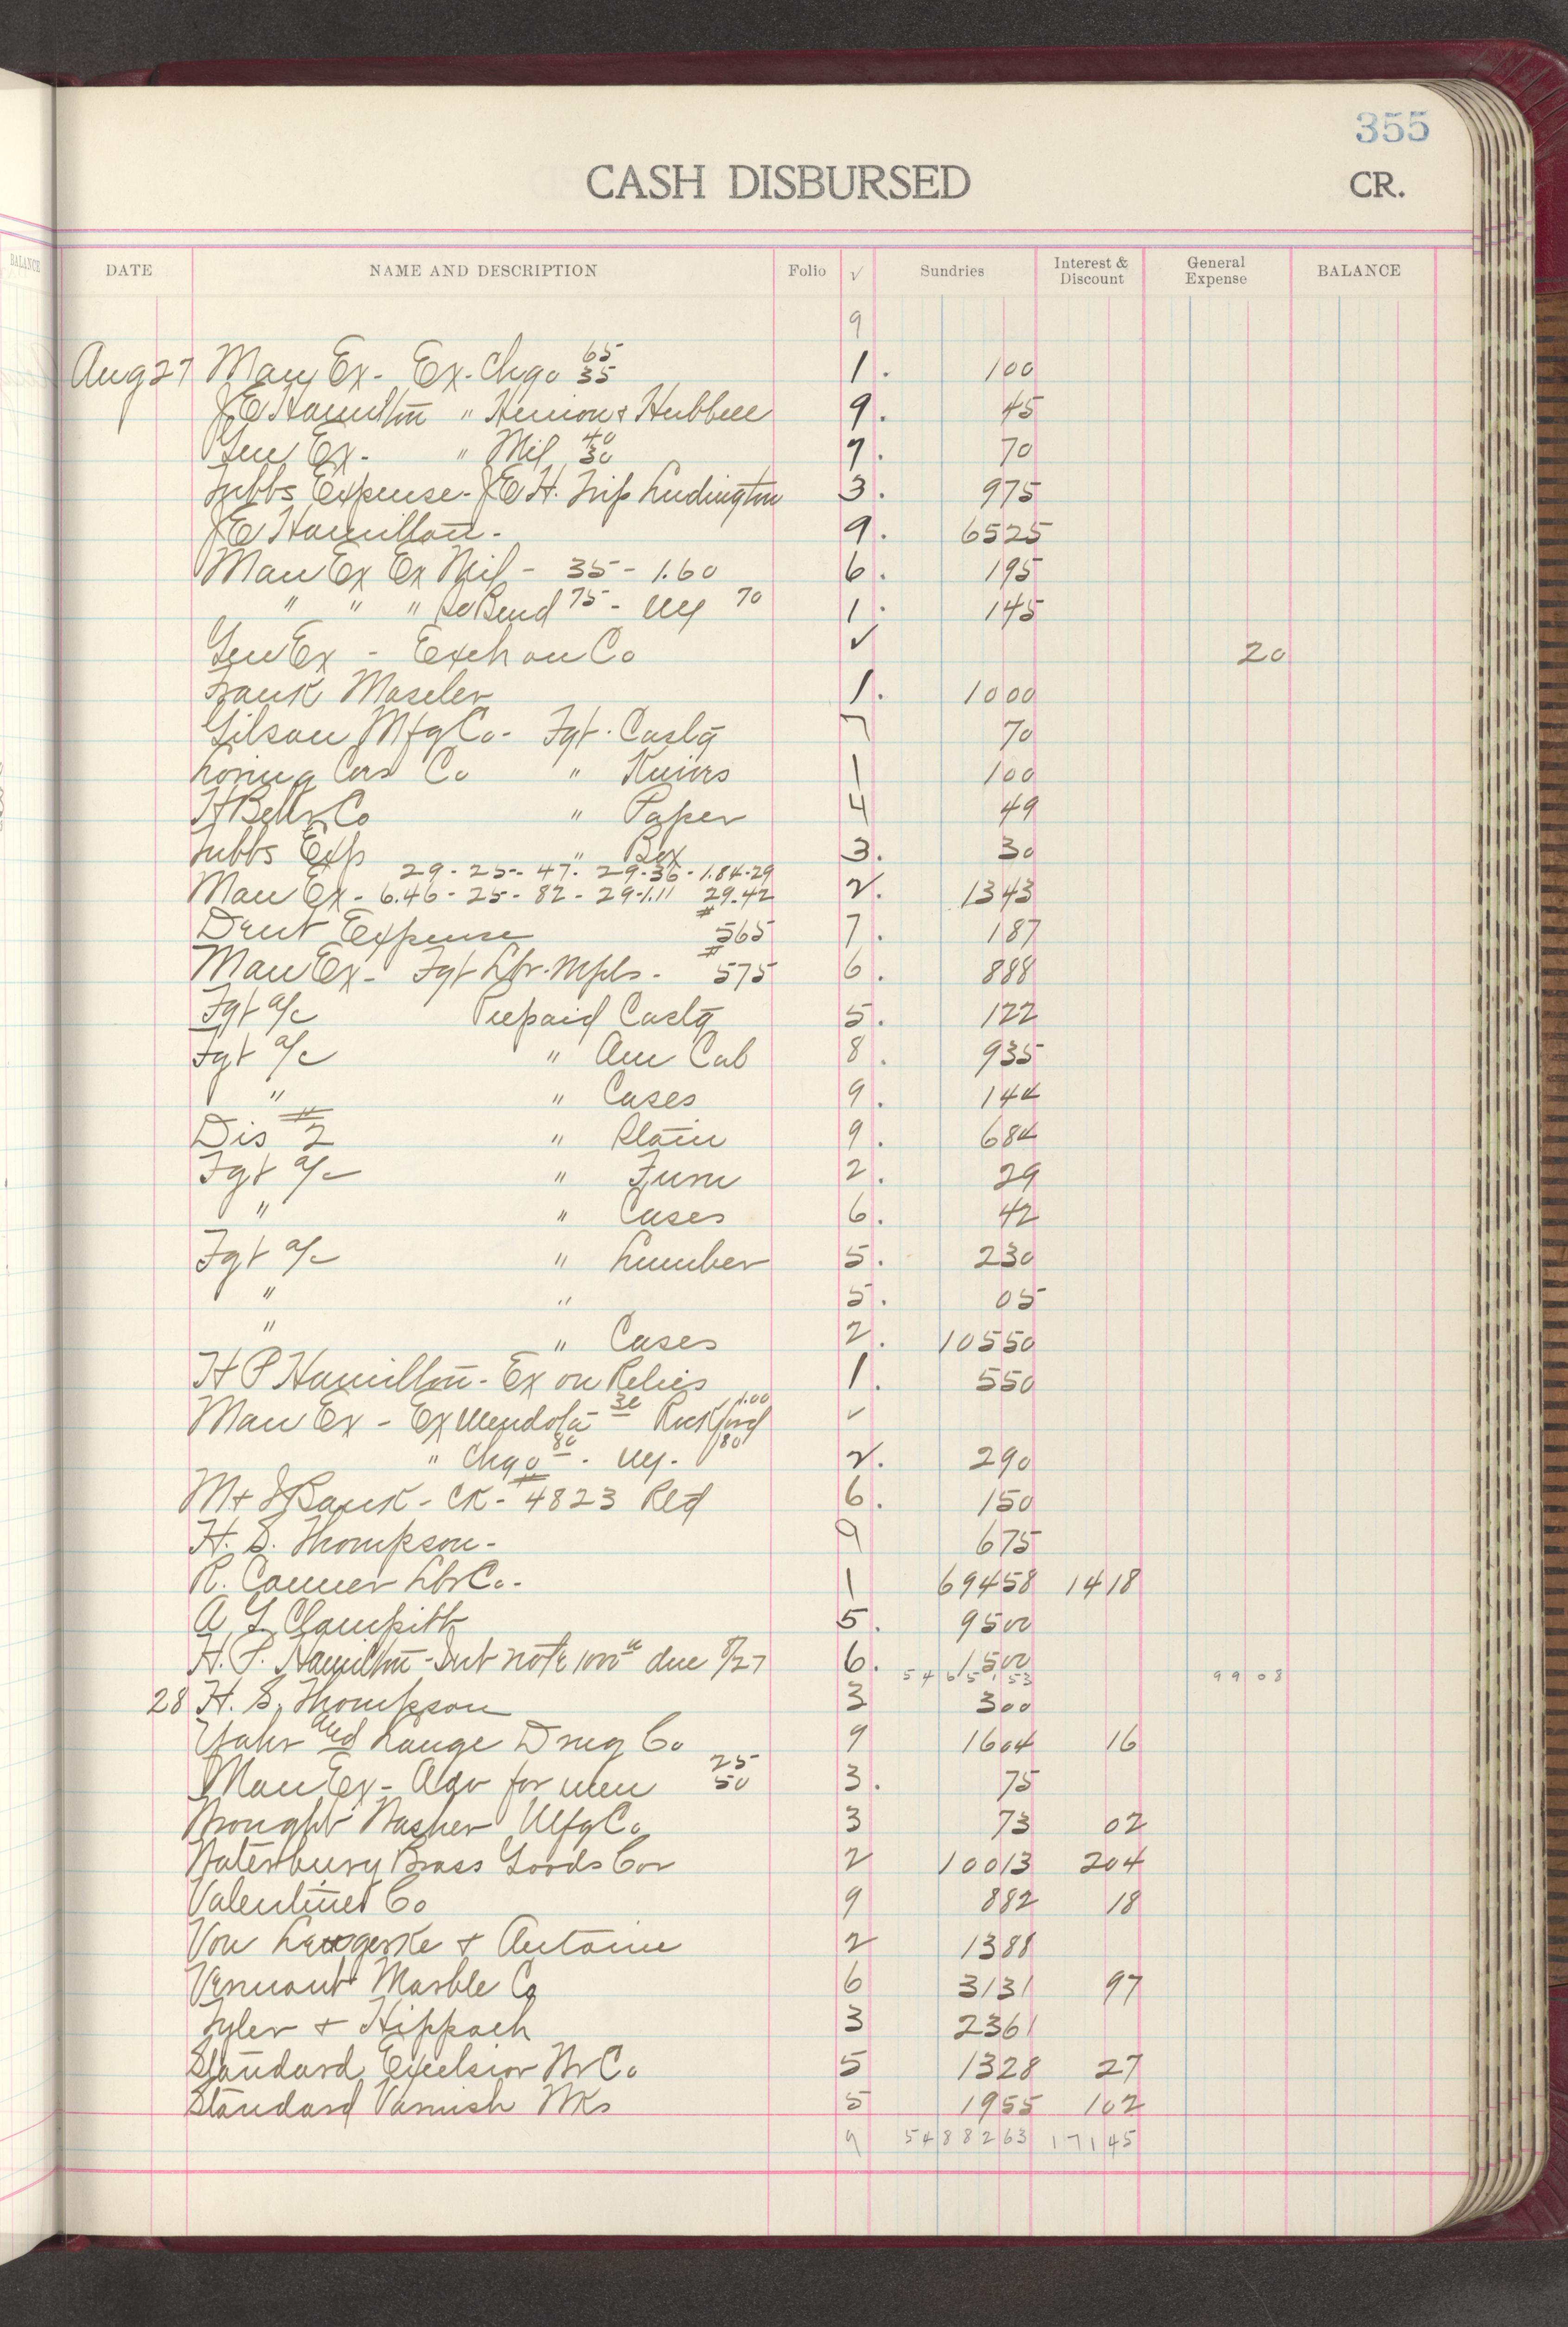 355
CASH DISBURSED CR.
BALANCE DATE NAME AND DESCRIPTION Folio √ Sundries Interest & Discount General Expense BALANCE
9
Aug 27 Man Ex - Ex. Chgo 65 35 1. 100
J E Hamilton " Henion & Hubbell 9. 45
Gen Ex - " Mil 40 30 7. 70
Tubbs Expense - J E H. Trip Ludington 3. 975
J E Hamilton - 9. 6525
Man Ex Ex Mil - 35 - 1.60 6. 195
" " " So Bend 75 - 70 1. 145
Gen Ex - Exch on Co ✓ 20
Frank Maseler 1. 1000
Gilson Mfg Co - Fgt. Castg 7 70
Loring Co " Knives 1 100
Co " Paper 4 49
Tubbs Exp " Box 3. 30
29 - 25 - 47 - 29 - 36 - 1.84 - 29
Man Ex - 6.46 - 25 - 82 - 29 - 1.11 29 - 42 2. 1343
Dent Expense #565 7. 187
Man Ex - Fgt Lbr. Mpls. - #575 6. 888
Fgt a/c Prepaid Castg 5. 122
Fgt a/c " Am Cab 8. 935
" " Cases 9. 144
Dis #2 " Plain 9. 684
Fgt a/c " Furn 2. 29
" " Cases 6. 42
Fgt a/c " Lumber 5. 230
" " 5. 05
" " Cases 2. 10550
H P Hamilton - Ex on Relics 1. 550
Man Ex - Ex Mendota 30 Rockford 1.00 ✓
" Chgo 80 - 80 2. 290
M & I Bank - CK - #4823 Retd 6. 150
H. S. Thompson - 9 675
R. Conner Lbr Co. - 1 69458 1418
A L Clampitt 5. 9500
H. P. Hamilton - Int note 1000 00 due 8/27 6. 1500
54651 53 9908
28 H. S. Thompson 3 300
Yahr and Lange Drug Co 9 1604 16
Man Ex - Adv for men 25 50 3. 75
Wrought Washer Mfg Co 3 73 02
Waterbury Brass Goods Cor 2 10013 204
Valentine & Co 9 882 18
Von Lengerke & Antoine 2 1388
Vermont Marble Co 6 3131 97
Tyler & Hippach 3 2361
Standard Excelsior Co 5 1328 27
Standard Varnish Wks 5 1955 102
9 5488263 17145